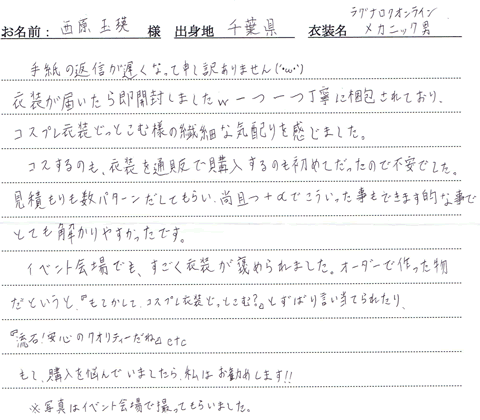 お名前： 西原 玉瑛 様 出身地 千葉県 衣装名 ラグナロクオンライン
メカニック男
手紙の返信が遅くなって申し訳ありません(´・ω・`)
衣装が届いたら即開封しましたw 一つ一つ丁寧に梱包されており、
コスプレ衣装どっとこむ様の繊細な気配りを感じました。
コスするのも、衣装を通販で購入するのも初めてだったので不安でした。
見積もりも数パターンだしてもらい、尚且つ+αでこういった事もできます的な事で
とても解かりやすかったです。
イベント会場でも、すごく衣装が褒められました。オーダーで作った物
だというと、『もしかして、コスプレ衣装どっとこむ？』とずばり言い当てられたり、
『流石！安心のクオリティーだね』etc
もし、購入を悩んでいましたら、私はお勧めします!!
※写真はイベント会場で撮ってもらいました。